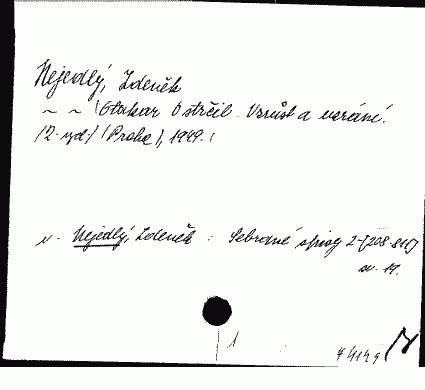 Nejedlý, Zdeněk
~ ~ (Otakar Ostrčil. Vzrůst a uzrání.
/2. vyd/ (Praha), 1949.
v. Nejedlý, Zdeněk : Sebrané spisy
sv. 19.
1
N